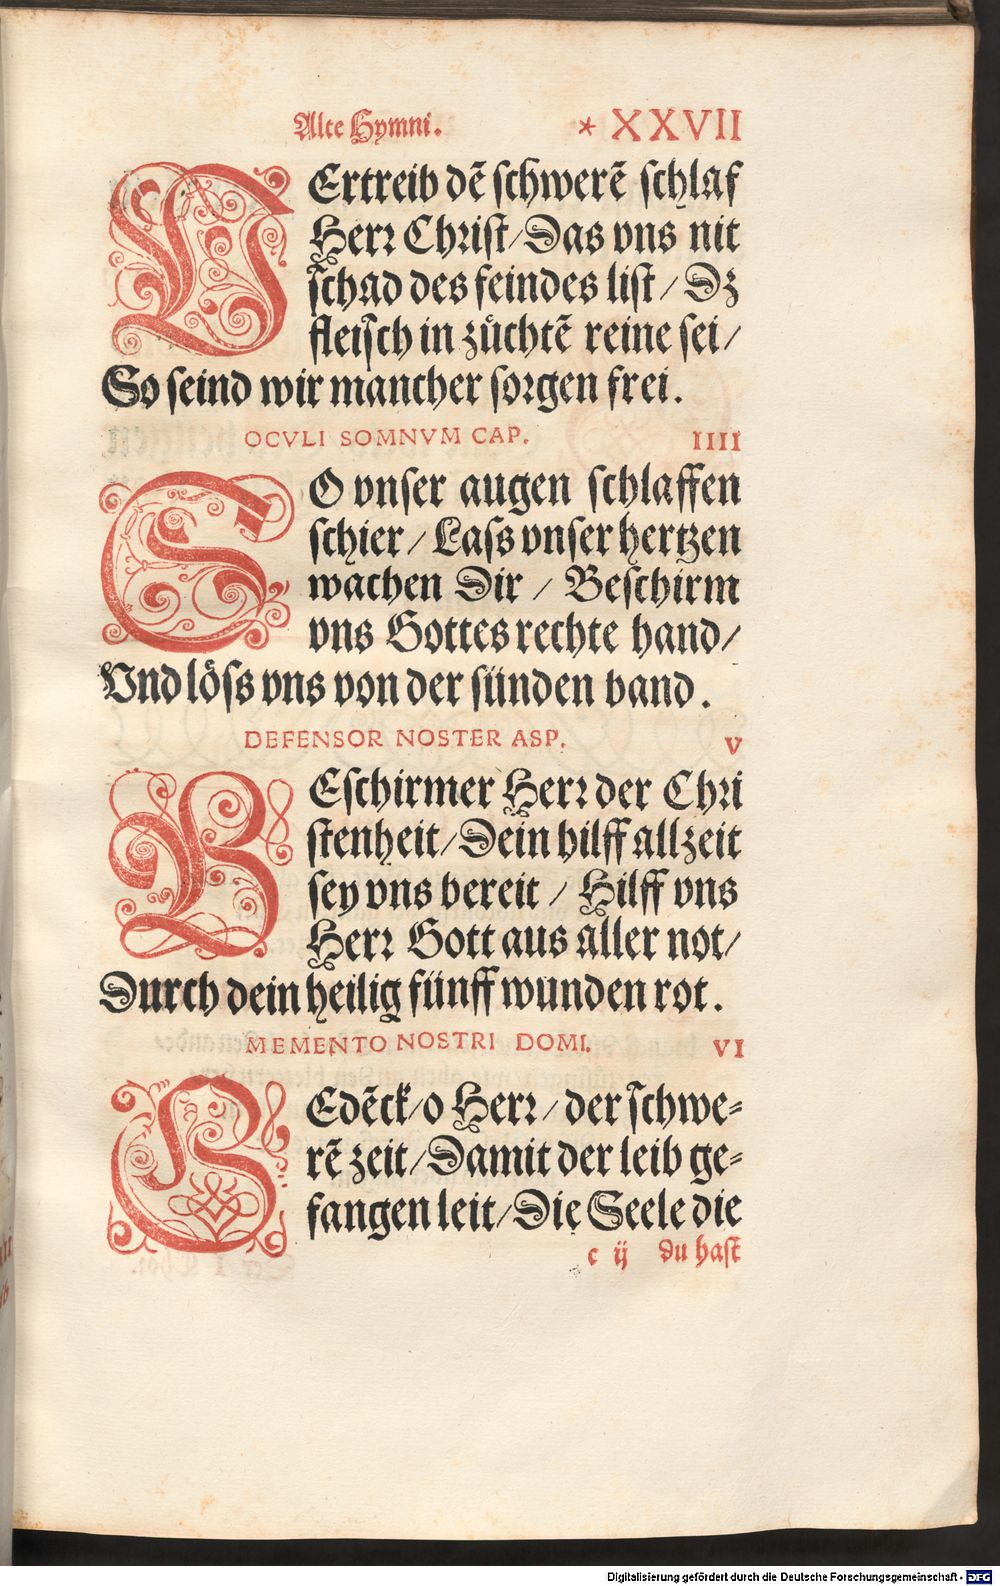 Alte Hymni. * XXVII
VErtreib dẽ schwerẽ schlaf
Herr Christ/Das vns nit
schad des feindes list/Dz
fleisch in züchtẽ reine sei/
So seind wir mancher sorgen frei.
OCVLI SOMNVM CAP. IIII
SO vnser augen schlaffen
schier/Lass vnser hertzen
wachen Dir/Beschirm
vns Gottes rechte hand/
Vnd löss vns von der sünden band.
DEFENSOR NOSTER ASP. V
BEschirmer Herr der Chri
stenheit/Dein hilff allzeit
sey vns bereit/Hilff vns
Herr Gott aus aller not/
Durch dein heilig fünff wunden rot.
MEMENTO NOSTRI DOMI. VI
GEdẽck/o Herr/der schwe=
rẽ zeit/Damit der leib ge=
fangen leit/Die Seele die
c ij du hast
Digitalisierung gefördert durch die Deutsche Forschungsgemeinschaft - DFG